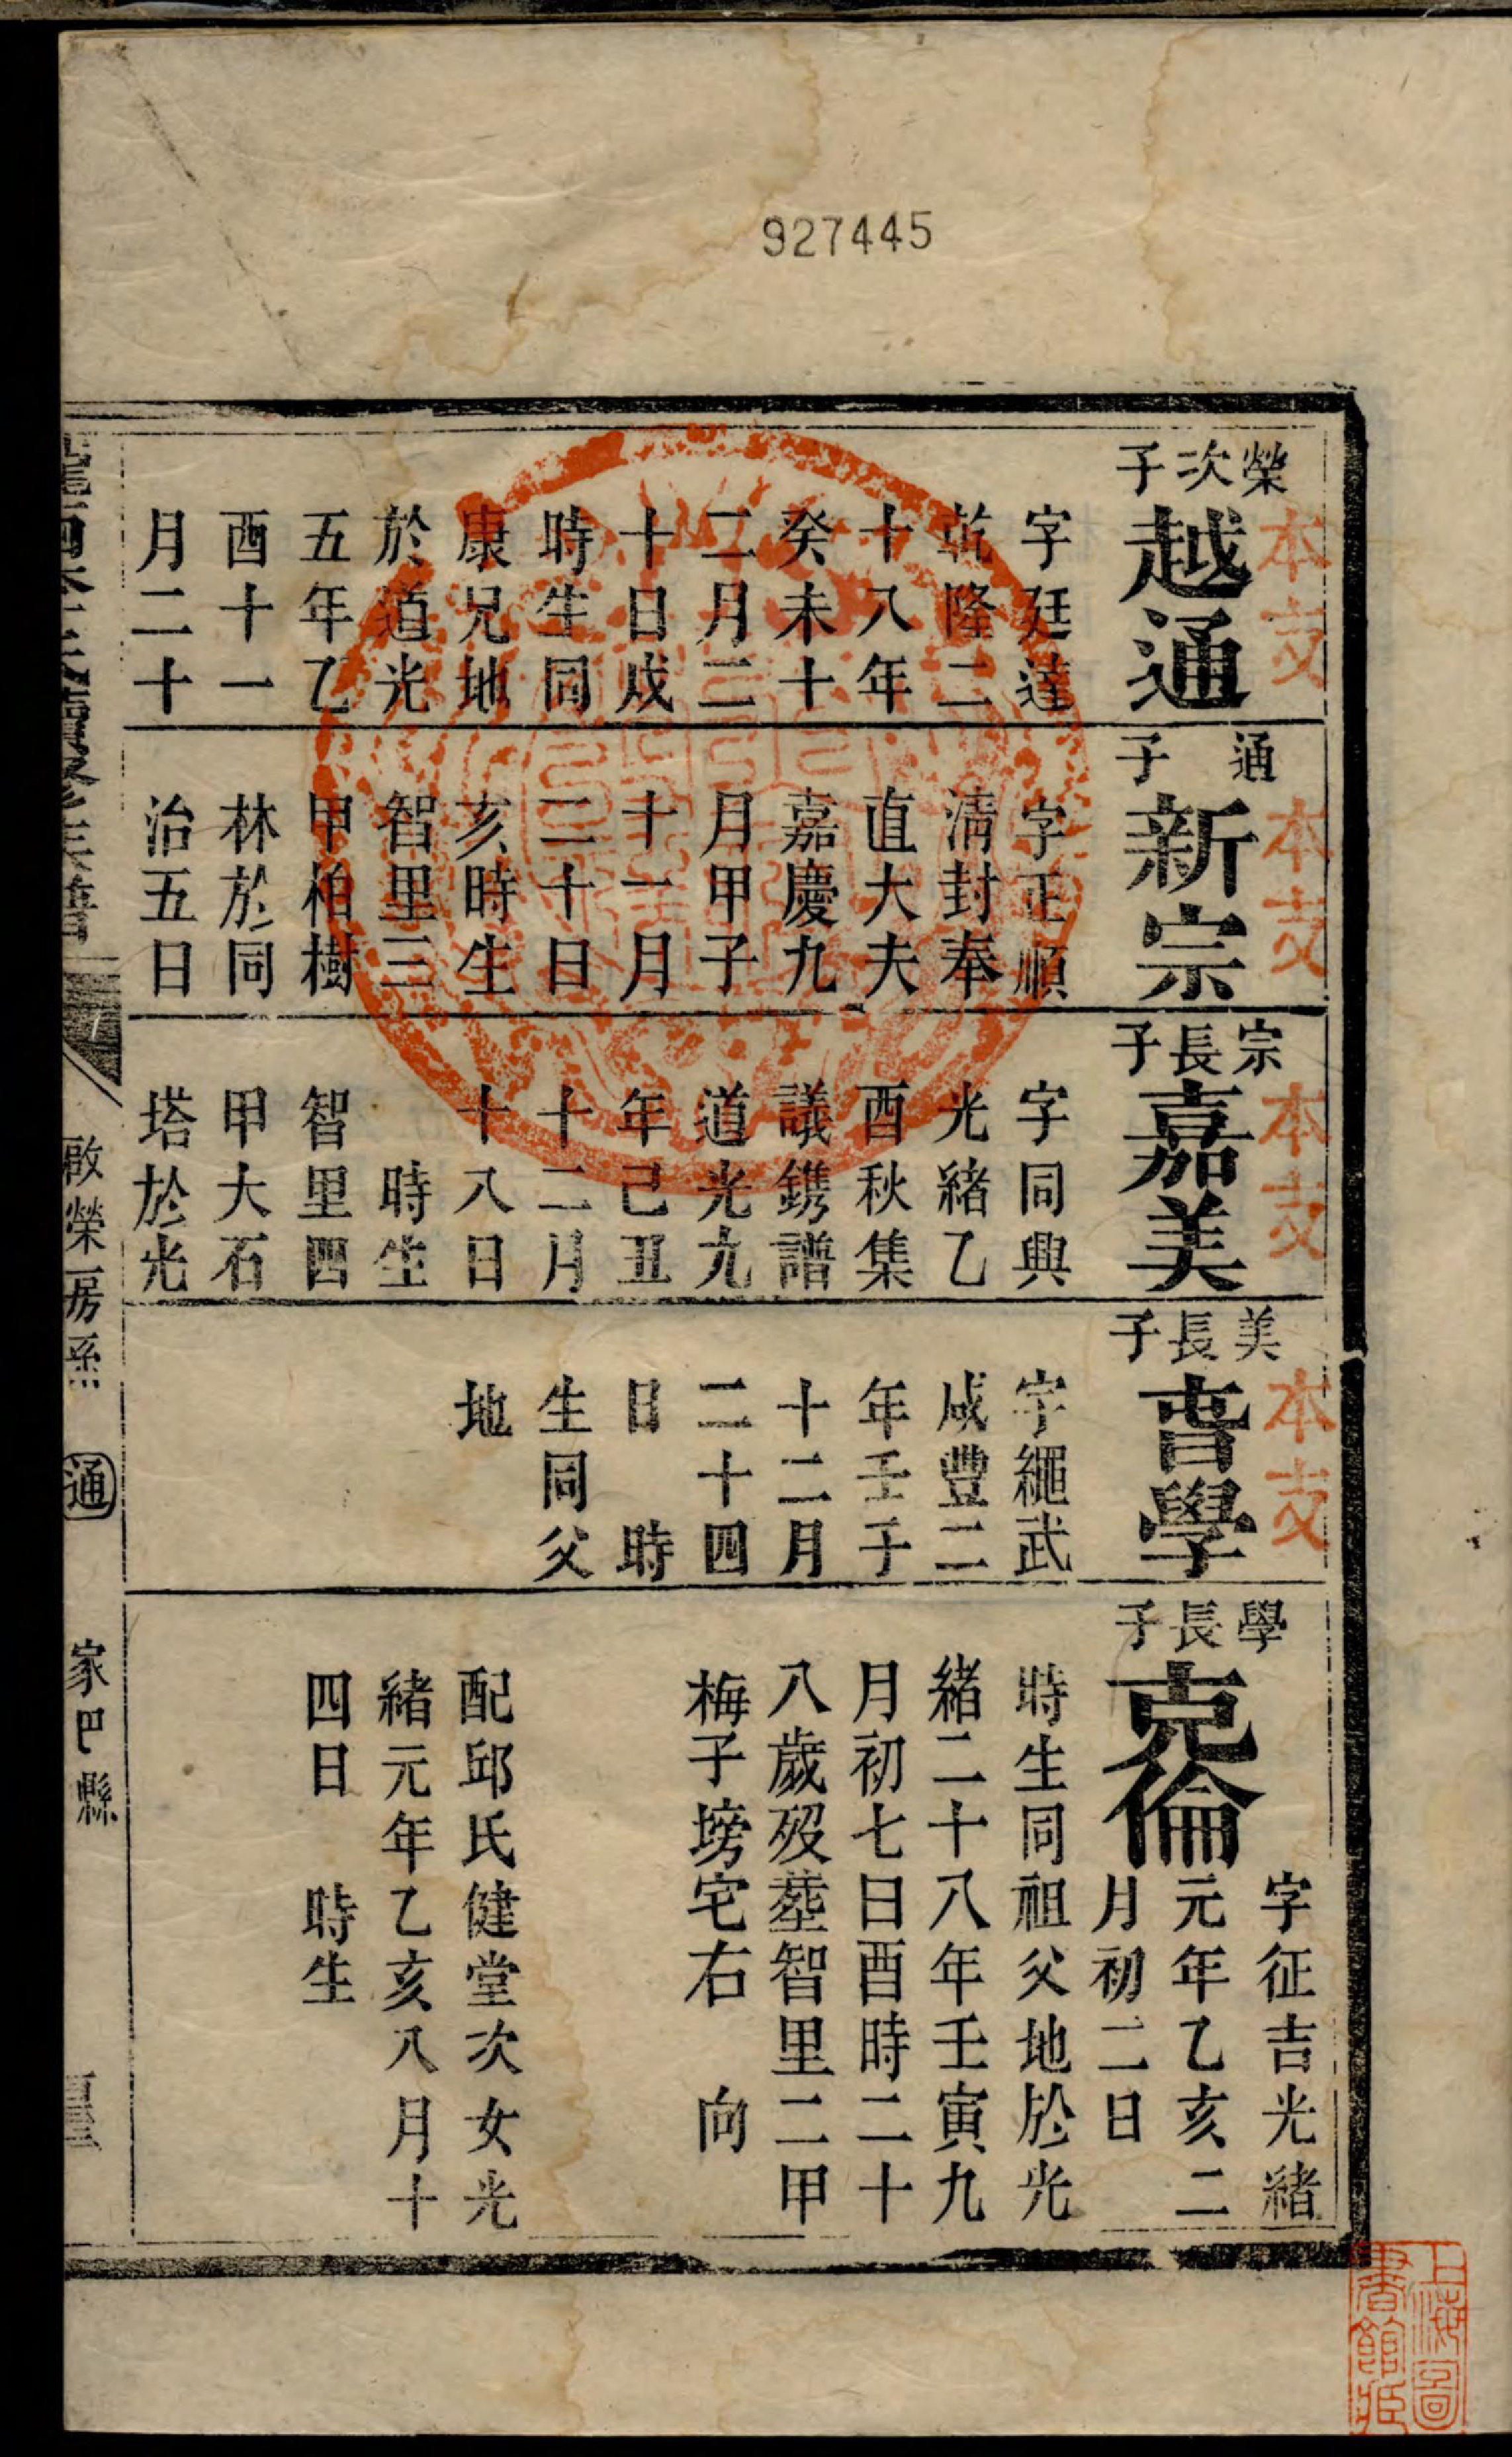 927445
本支
榮次子
越通
字廷達
乾隆二
十八年
癸未十
二月二
十日戌
時生同
康兄地
於道光
五年乙
酉十一
月二十
本支
通子
新宗
字正順
淸封奉
直大夫
嘉慶九
月甲子
十一月
二十日
亥時生
智里三
甲柏樹
林於同
治五日
本支
宗長子
嘉美
字同興
光緒乙
酉秋集
議鐫譜
道光九
年己丑
十二月
十八日
時生
智里四
甲大石
塔於光
本支
美長子
學
字繩武
咸豐二
年壬子
十二月
二十四
日 時
生同父
地
學長子
克倫
字征吉光緒
元年乙亥二
月初二日
時生同祖父地於光
緒二十八年壬寅九
月初七日酉時二十
八歲歿塟智里二甲
梅子塝宅右 向
配邱氏健堂次女光
緒元年乙亥八月十
四日 時生
啟榮房系
通
家巴縣
上海圖
書館藏